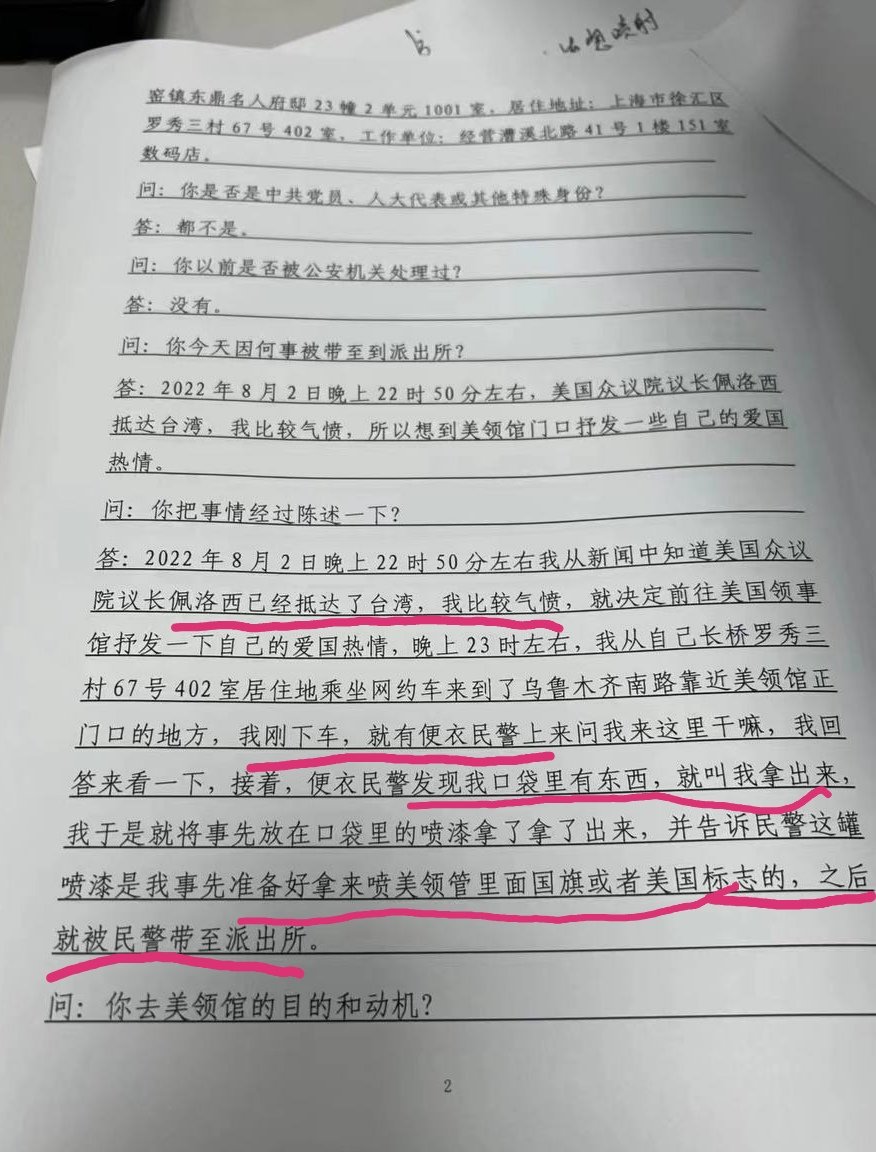 窑镇东鼎名人府邸23幢2单元1001室，居住地址：上海市徐汇区
罗秀三村67号402室，工作单位：经营漕溪北路41号1楼151室
数码店。
问：你是否是中共党员、人大代表或其他特殊身份？
答：都不是。
问：你以前是否被公安机关处理过？
答：没有。
问：你今天因何事被带至到派出所？
答：2022年8月2日晚上22时50分左右，美国众议院议长佩洛西
抵达台湾，我比较气愤，所以想到美领馆门口抒发一些自己的爱国
热情。
问：你把事情经过陈述一下？
答：2022年8月2日晚上22时50分左右我从新闻中知道美国众议
院议长佩洛西已经抵达了台湾，我比较气愤，就决定前往美国领事
馆抒发一下自己的爱国热情，晚上23时左右，我从自己长桥罗秀三
村67号402室居住地乘坐网约车来到了乌鲁木齐南路靠近美领馆正
门口的地方，我刚下车，就有便衣民警上来问我来这里干嘛，我回
答来看一下，接着，便衣民警发现我口袋里有东西，就叫我拿出来，
我于是就将事先放在口袋里的喷漆拿了拿了出来，并告诉民警这罐
喷漆是我事先准备好拿来喷美领管里面国旗或者美国标志的，之后
就被民警带至派出所。
问：你去美领馆的目的和动机？
2